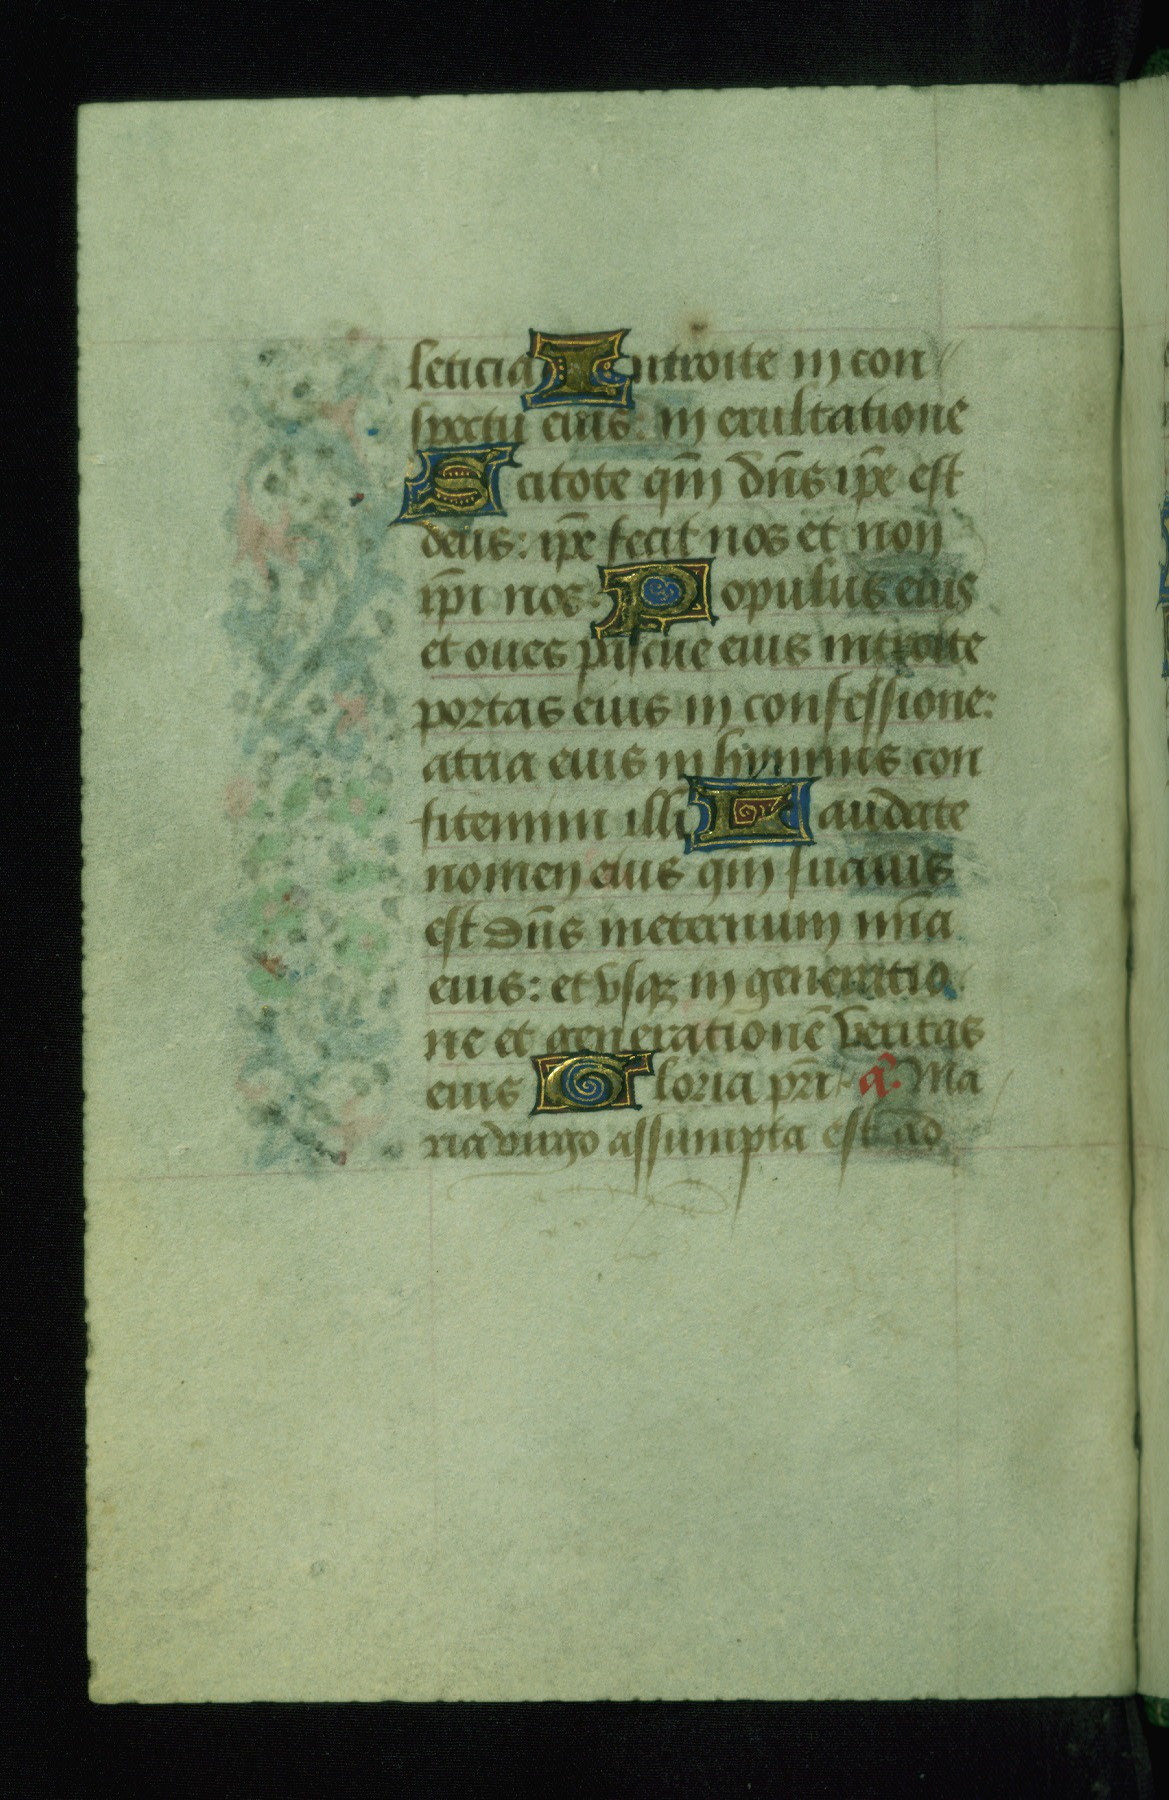 leticia Introite in con
spectu eius: in exultatione
Scitote qm̄ dn̄s ip̄e est
deus: ip̄e fecit nos et non
ip̄i nos. Populus eius
et oues pascue eius introite
portas eius in confessione:
atria eius in hymnis con
fitemini illi Laudate
nomen eius qm̄ suauis
est dn̄s ineternum mīa
eius: et vsqz in generatio
ne et generationē veritas
eius Gloria pr̄i. a. Ma
ria virgo assumpta est ad